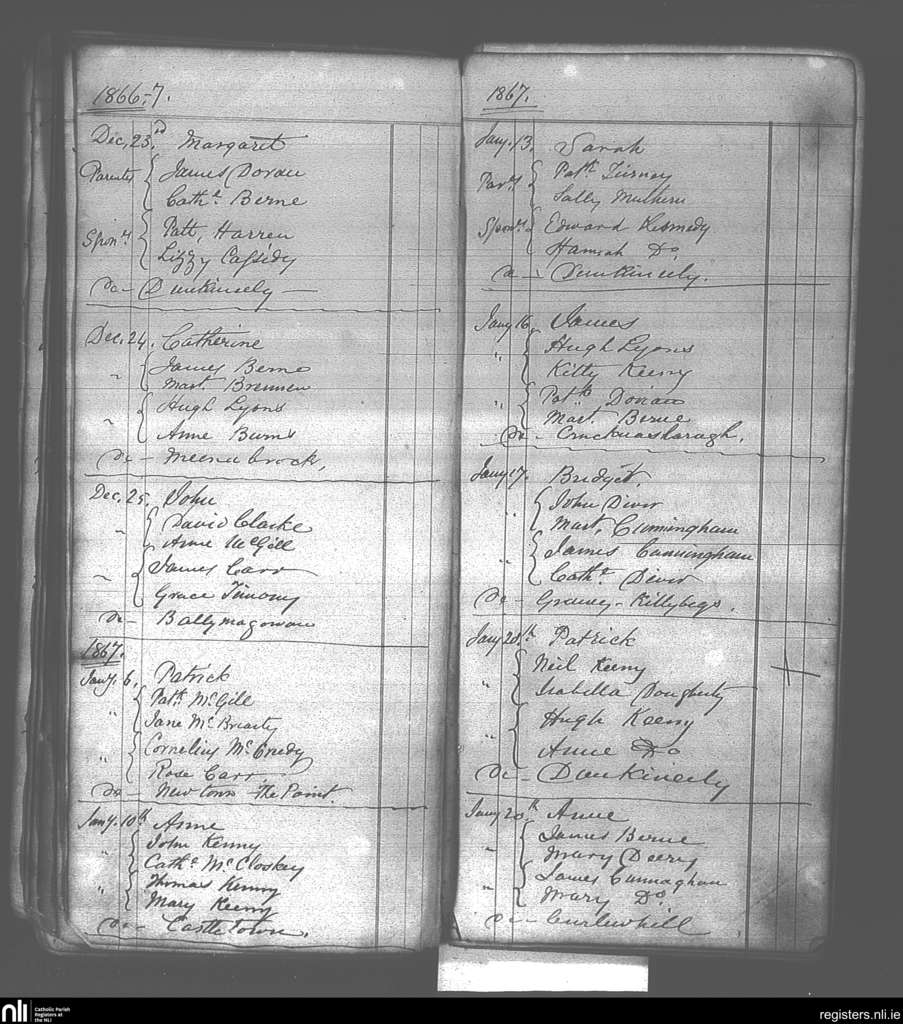 1866-7.
Dec. 23rd Margaret
Parents James Doran
Cathe. Berne
Sponrs Patt, Harren
Lizzy Cassidy
Do - Dunkineely -
Dec. 24. Catherine
" James Berne
Mart Brennen
" Hugh Lyons
Anne Burns
Do - Meenabrock,
Dec. 25. John
" David Clarke
Anne McGill
" James Carr
Grace Timony
Do - Ballymagowan
1867.
Jany. 6, Patrick
" Patk McGill
Jane McBriarty
" Cornelius McCredy
Rose Carr
Do - Newtown - The Point.
Jany. 10th Anne
" John Kenny
Cathe McCloskey
" Thomas Kenny
Mary Keeny
Do - Castletown.
1867.
Jany. 13. Sarah
Parts Patk Tierney
Sally
Sponrs Edward Kennedy
Hannah Do.
Do - Dunkineely.
Jany 16, James
" Hugh Lyons
Kitty Keeny
" Patk Doran
Mart. Berne
Do -
Jany 17. Bridget.
" John Diver
Mart, Cunningham
" James Cunningham
Cathe Diver
Do - Killybegs.
Jany 20th Patrick
" Neil Keeny
Isabella Dougherty
" Hugh Keeny
Anne Do
Do - Dunkineely
Jany 20th Anne
" James Berne
Mary Deery
" James Cunnaghan
Mary Do.
Do - Curlewhill
nli
Catholic Parish
Registers at
the NLI
registers.nli.ie